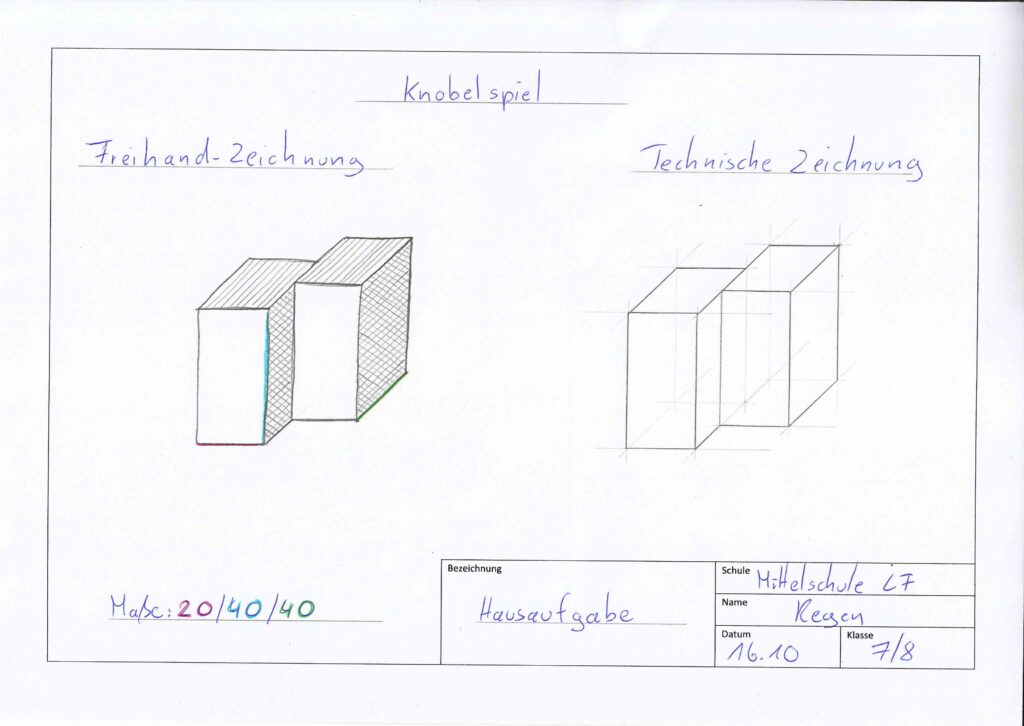 Knobelspiel
Freihand-Zeichnung
Technische Zeichnung
Maße: 20/40/40
Bezeichnung
Hausaufgabe
Schule Mittelschule LF
Name Regen
Datum 16.10
Klasse 7/8